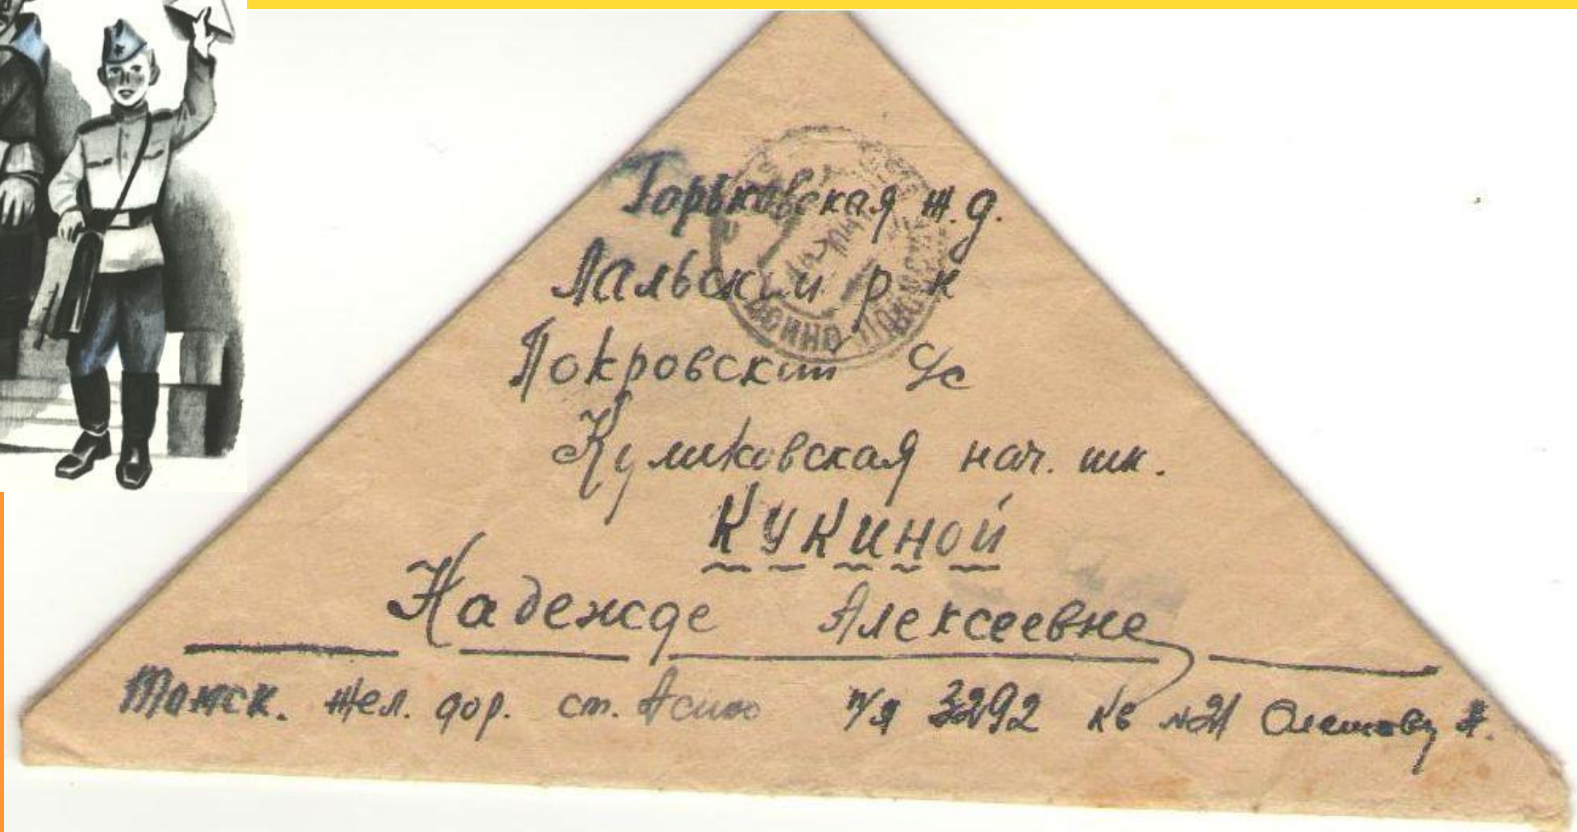 Горьковская ж.д.
Лальский р-н
Покровский с/с
Куликовская нач. шк.
КУКИНОЙ
Надежде Алексеевне
Томск. жел. дор. ст. Асино п/я 3292 кв №21
АСИНО НОВОСИБ